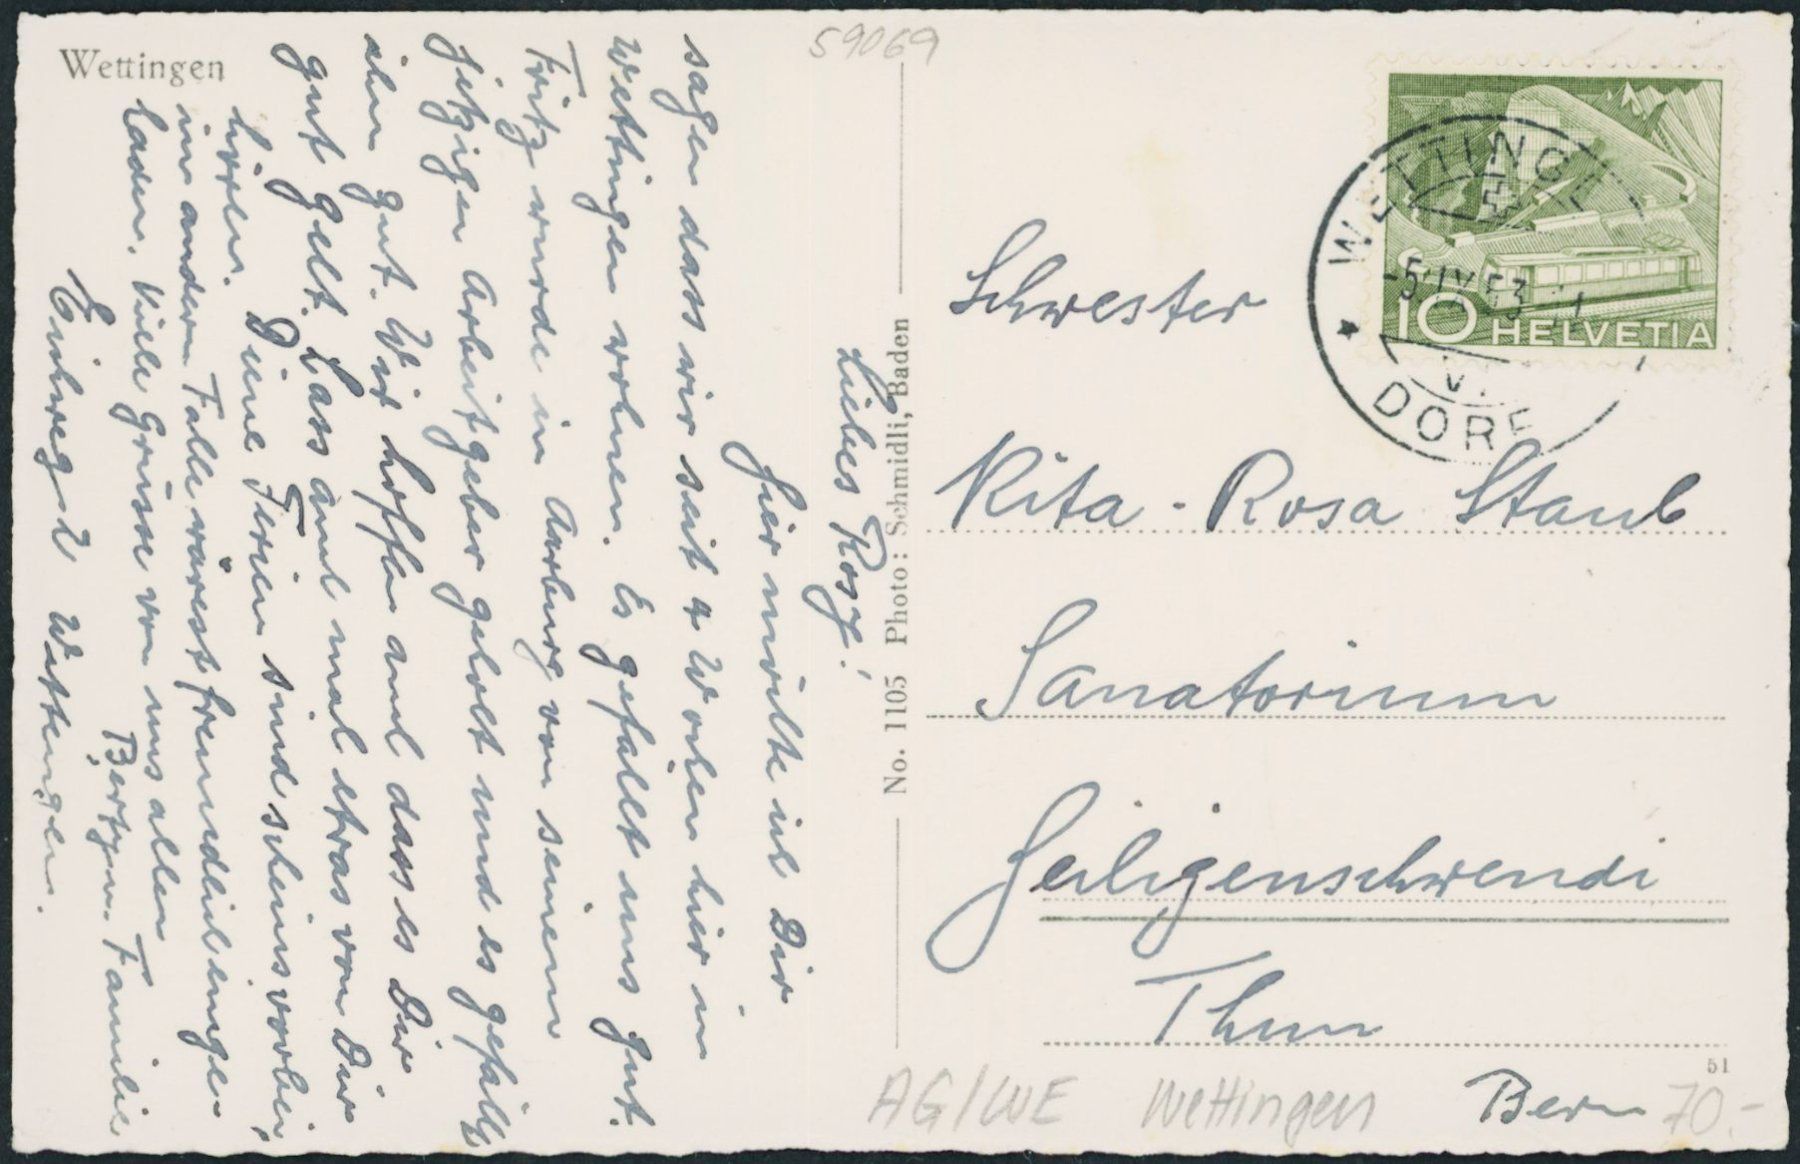 Wettingen
59069
Liebes Rosy!
Hier möchte ich Dir
sagen dass wir seit 4 Wochen hier in
Wettingen wohnen. Es gefällt uns gut.
Fritz wurde in Aarburg von seinem
jetzigen Arbeitgeber geholt und es gefällt
ihm gut. Wir hoffen auch dass es Dir
gut geht. Lass auch mal etwas von Dir
hören. Deine Ferien sind schein's vorbei,
im andern Falle wärest freundlich eingen
laden. Viele Grüsse von uns allen
Familie
Eichweg 2 Wettingen.
No. 1105 Photo: Schmidli, Baden
10 HELVETIA
WETTINGEN
-5.IX.53
DORF
Schwester
Rita-Rosa Staub
Sanatorium
Heiligenschwendi
Thun
Bern
51
AG/WE Wettingen
70.-